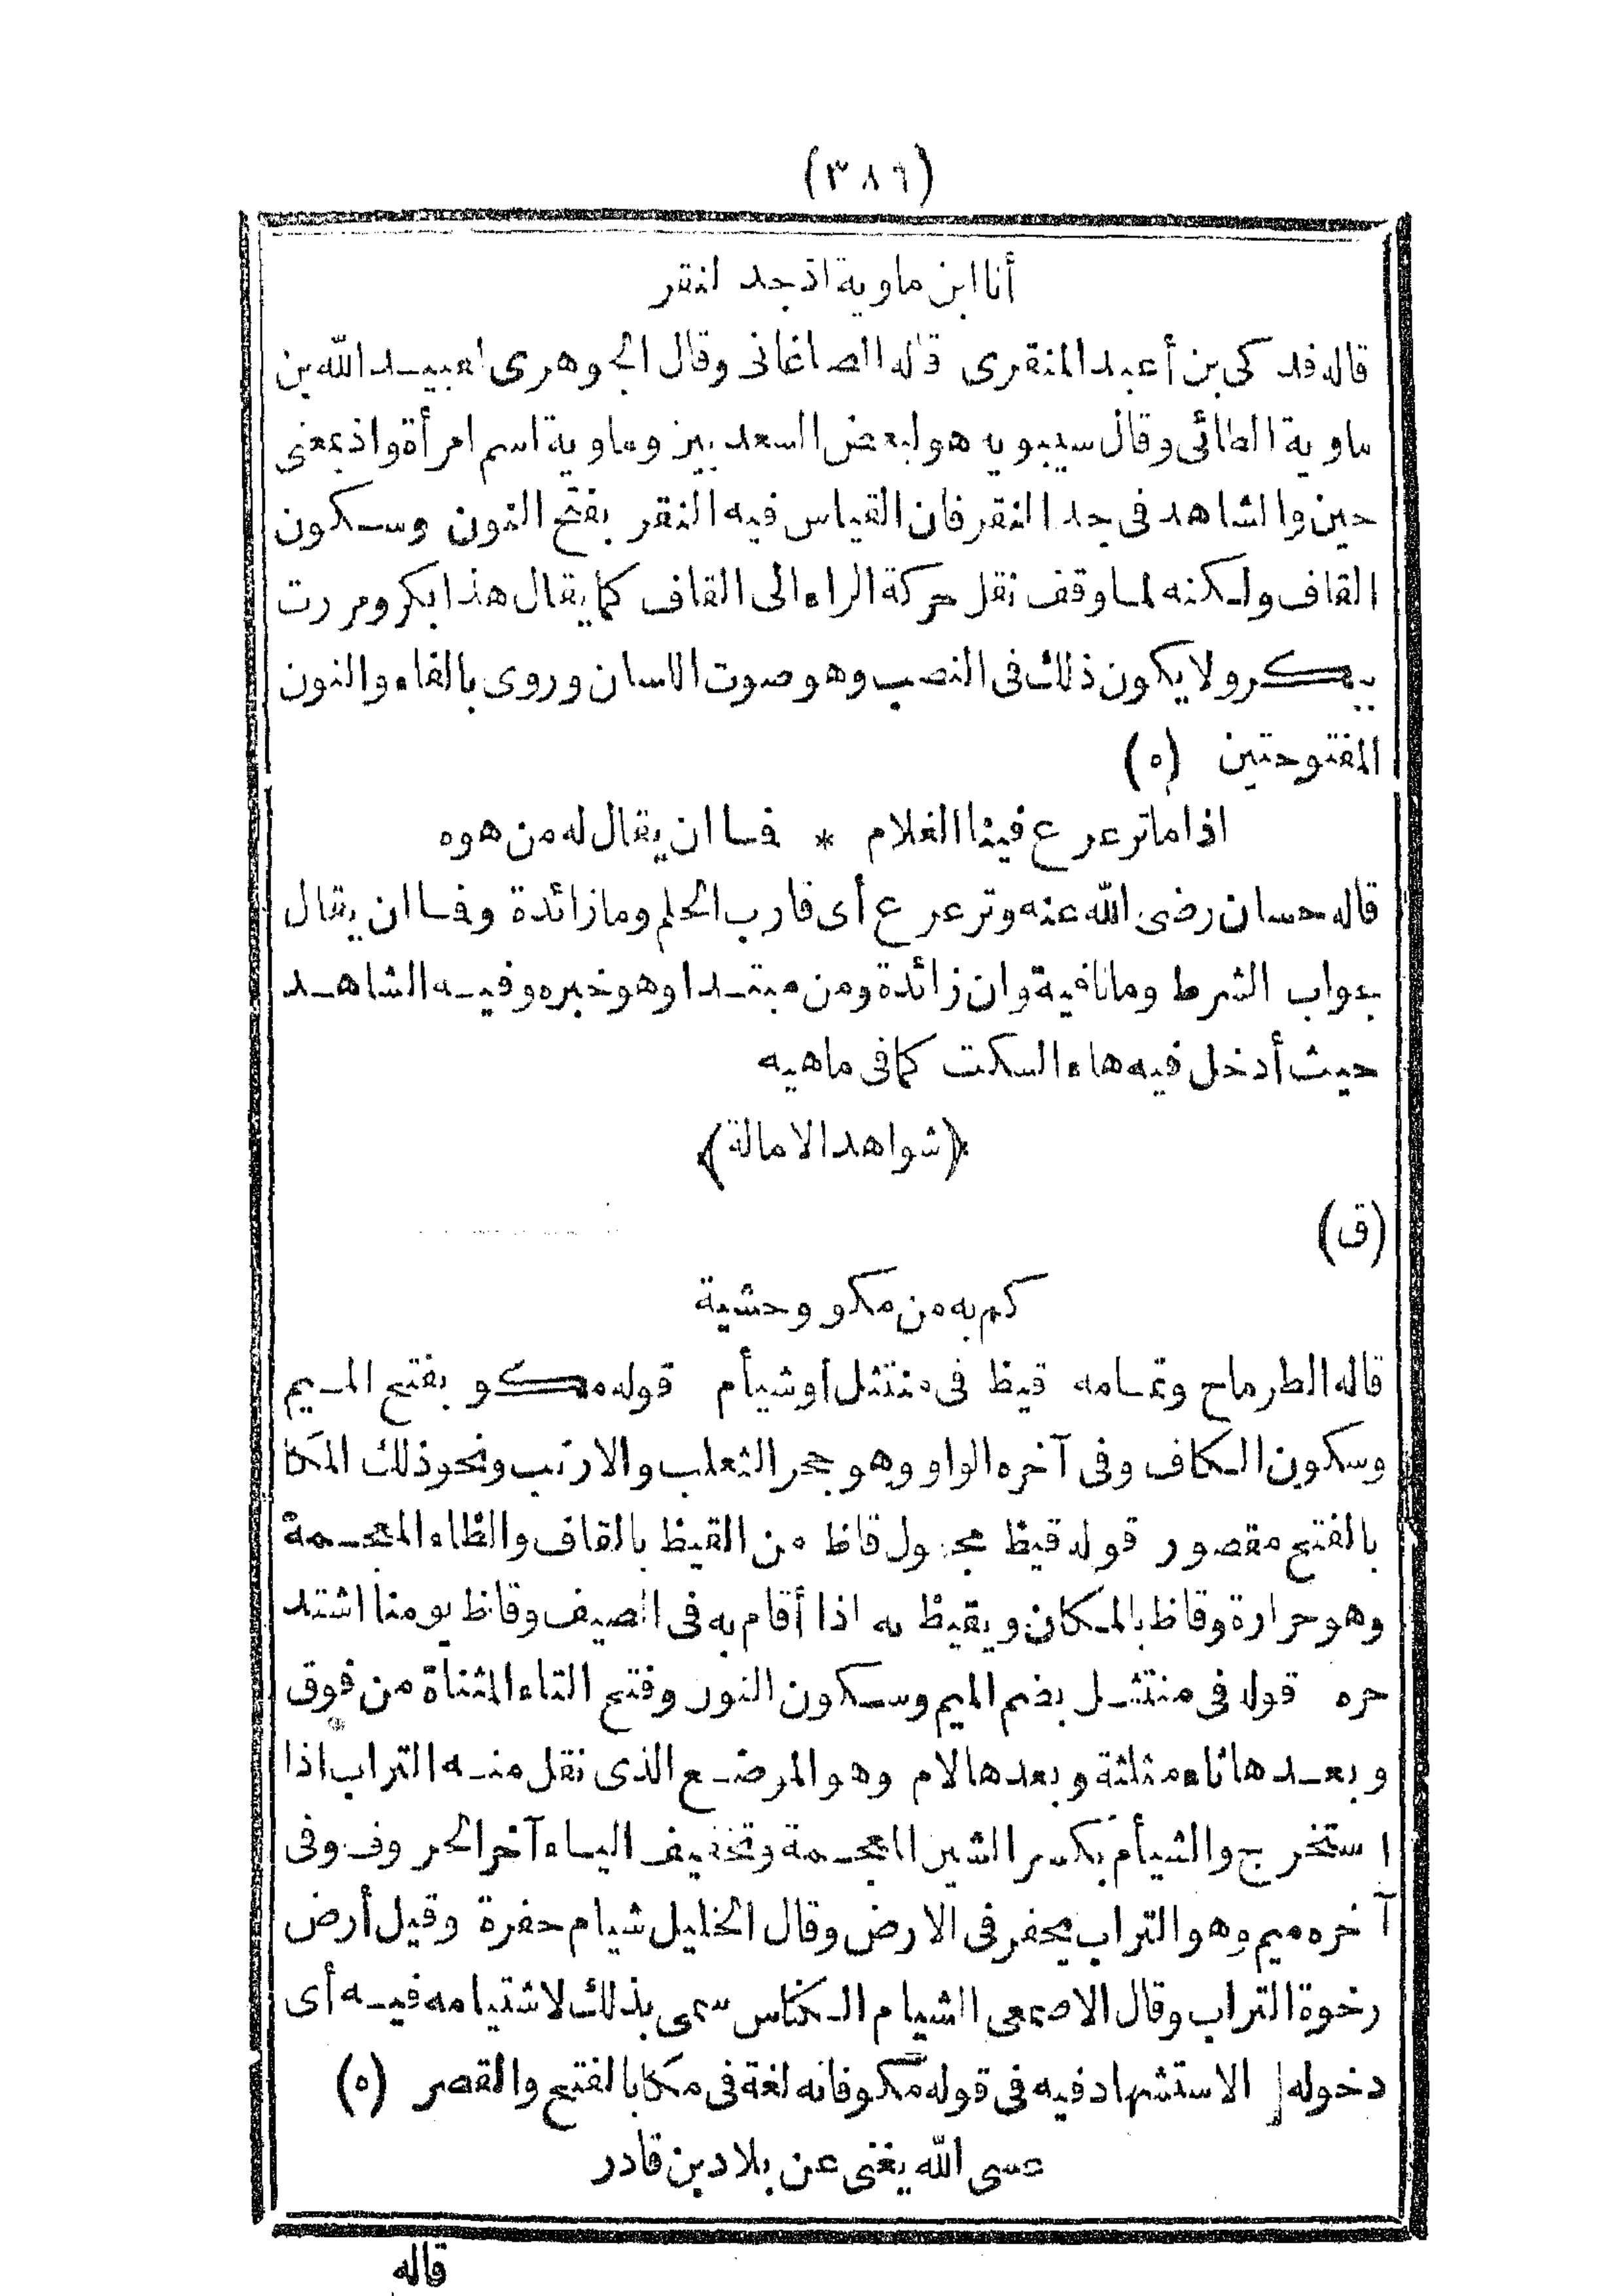 (٣٨٦)
أنا ابن ماوية اذ جد النقر
قاله فدكى بن أعبد المنقرى قاله الصاغانى وقال الجوهرى لعبيد الله بن
ماوية الطائى وقال سيبويه هو لبعض السعديين وماوية اسم امرأة واذ بمعنى
حين والشاهد فى جد النقر فان القياس فيه النقر بفتح النون وسكون
القاف ولكنه لما وقف نقل حركة الراء الى القاف كما يقال هذا بكر ومررت
ببكر ولا يكون ذلك فى النصب وهو صوت اللسان وروى بالفاء والنون
المفتوحتين (ه)
اذا ما ترعرع فينا الغلام * فما ان يقال له من هوه
قاله حسان رضى الله عنه وترعرع أى قارب الحلم وما زائدة وفما ان يقال
جواب الشرط وما نافية وان زائدة ومن مبتدا وهو خبره وفيه الشاهد
حيث أدخل فيه هاء السكت كما فى ماهيه
﴿شواهد الامالة﴾
(ق)
كم به من مكو وحشية
قاله الطرماح وتمامه قيظ فى منتثل أو شيأم قوله مكو بفتح الميم
وسكون الكاف وفى آخره الواو وهو جحر الثعلب والارنب ونحو ذلك المكا
بالفتح مقصور قوله قيظ مجهول قاظ من القيظ بالقاف والظاء المعجمة
وهو حرارة وقاظ بالمكان ويقيظ به اذا أقام به فى الصيف وقاظ يومنا اشتد
حره قوله فى منتثل بضم الميم وسكون النون وفتح التاء المثناة من فوق
وبعدها ثاء مثلثة وبعدها لام وهو الموضع الذى نقل منه التراب اذا
استخرج والشيأم بكسر الشين المعجمة وتخفيف الياء آخر الحروف وفى
آخره ميم وهو التراب يحفر فى الارض وقال الخليل شيام حفرة وقيل أرض
رخوة التراب وقال الاصمعى الشيام الكناس سمى بذلك لاشتيامه فيه أى
دخوله الاستشهاد فيه فى قوله مكو فانه لغة فى مكا بالفتح والقصر (ه)
عسى الله يغنى عن بلاد بن قادر
قاله